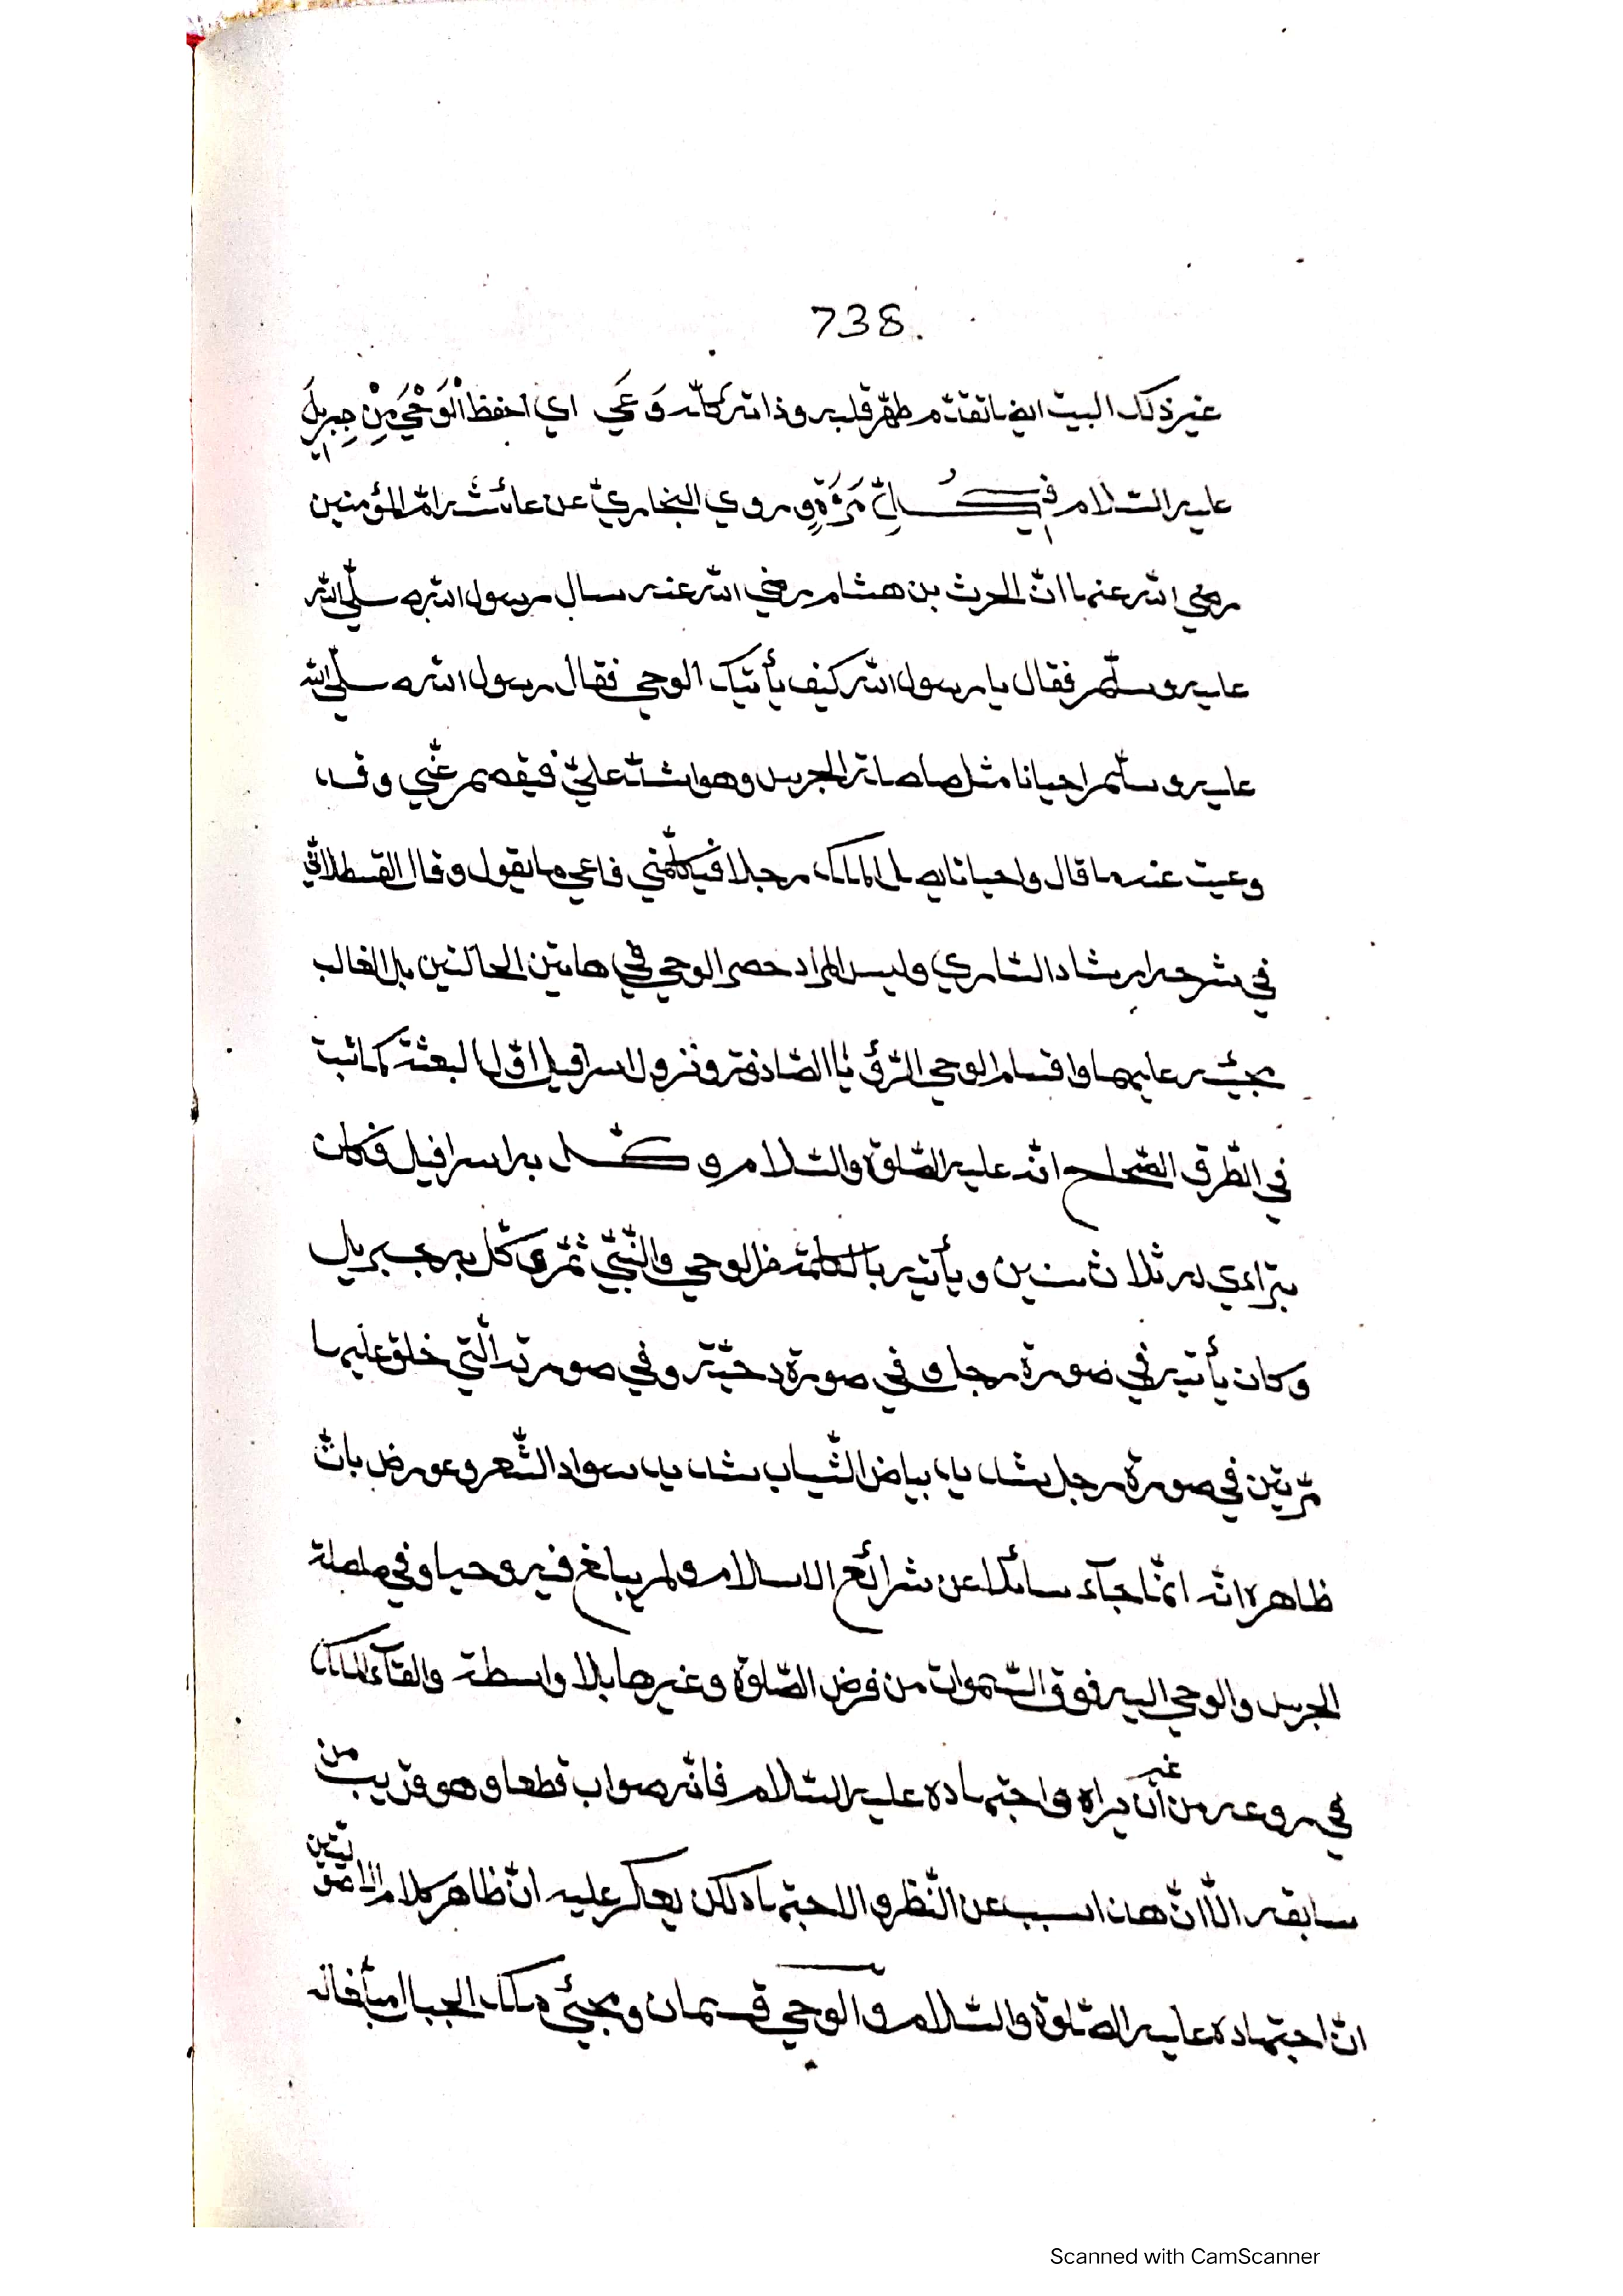 738
غير ذلك البيت ايضا تقدّم طهّر قلبه وذاته كلّه وَعَى اي احفظ الْوَحْيَ مِنْ جِبْرِيلَ
عليه السّلام فِي كُلِّ مَرَّةٍ وروي البخاريّ عن عائشة امّ المؤمنين
رضي الله عنها انّ الحرث بن هشام رضي الله عنه سال رسول الله صلّي الله
عليه وسلّم فقال يا رسول الله كيف يأتيك الوحي فقال رسول الله صلّي الله
عليه وسلّم احيانا مثل صلصلة الجرس وهو اشدّ عليّ فيفصم عنّي وقد
وعيت عنه ما قال واحيانا يتمثل لي الملك رجلا فيكلّمني فاعي ما يقول وقال القسطلانّي
في شرحه ارشاد السّاري وليس المراد حصر الوحي في هاتين الحالتين بل الغالب
مجيئه عليهما واقسام الوحي الرّؤيا الصّادقة ونزول اسرافيل اوّل البعثة كما ثبت
في الطّرق الصّحاح انّه عليه الصّلوة والسّلام وكّل به اسرافيل فكان
يتراءي له ثلاث سنين ويأتيه بالكلمة من الوحي والنّبيّ ثمّ وكّل به جبريل
وكان يأتيه في صورة رجل وفي صورة دحيّة وفي صورته الّتي خلق عليها
مرّتين في صورة رجل شديد بياض الثّياب شديد سواد الشّعر وعورض بانّ
ظاهره انّه انمّا جآء سائلا عن شرائع الاسلام ولم يبلغ فيه وحيا وفي صلصلة
الجرس والوحي اليه فوق السّموات من فرض الصّلوة وغيرها بلا واسطة والقآء الملك
في روعه من غير أن يراه واجتهاده عليه السّلام فانّه صواب قطعا وهو قريب من
سابقه الاّ انّ هذا سبب عن النّظر والاجتهاد لكن يعكر عليه انّ ظاهر كلام الاصوليّين
انّ اجتهاده عليه الصّلوة والسّلام والوحي قسمان ومجيئ ملك الجبال مبلّغا له
Scanned with CamScanner